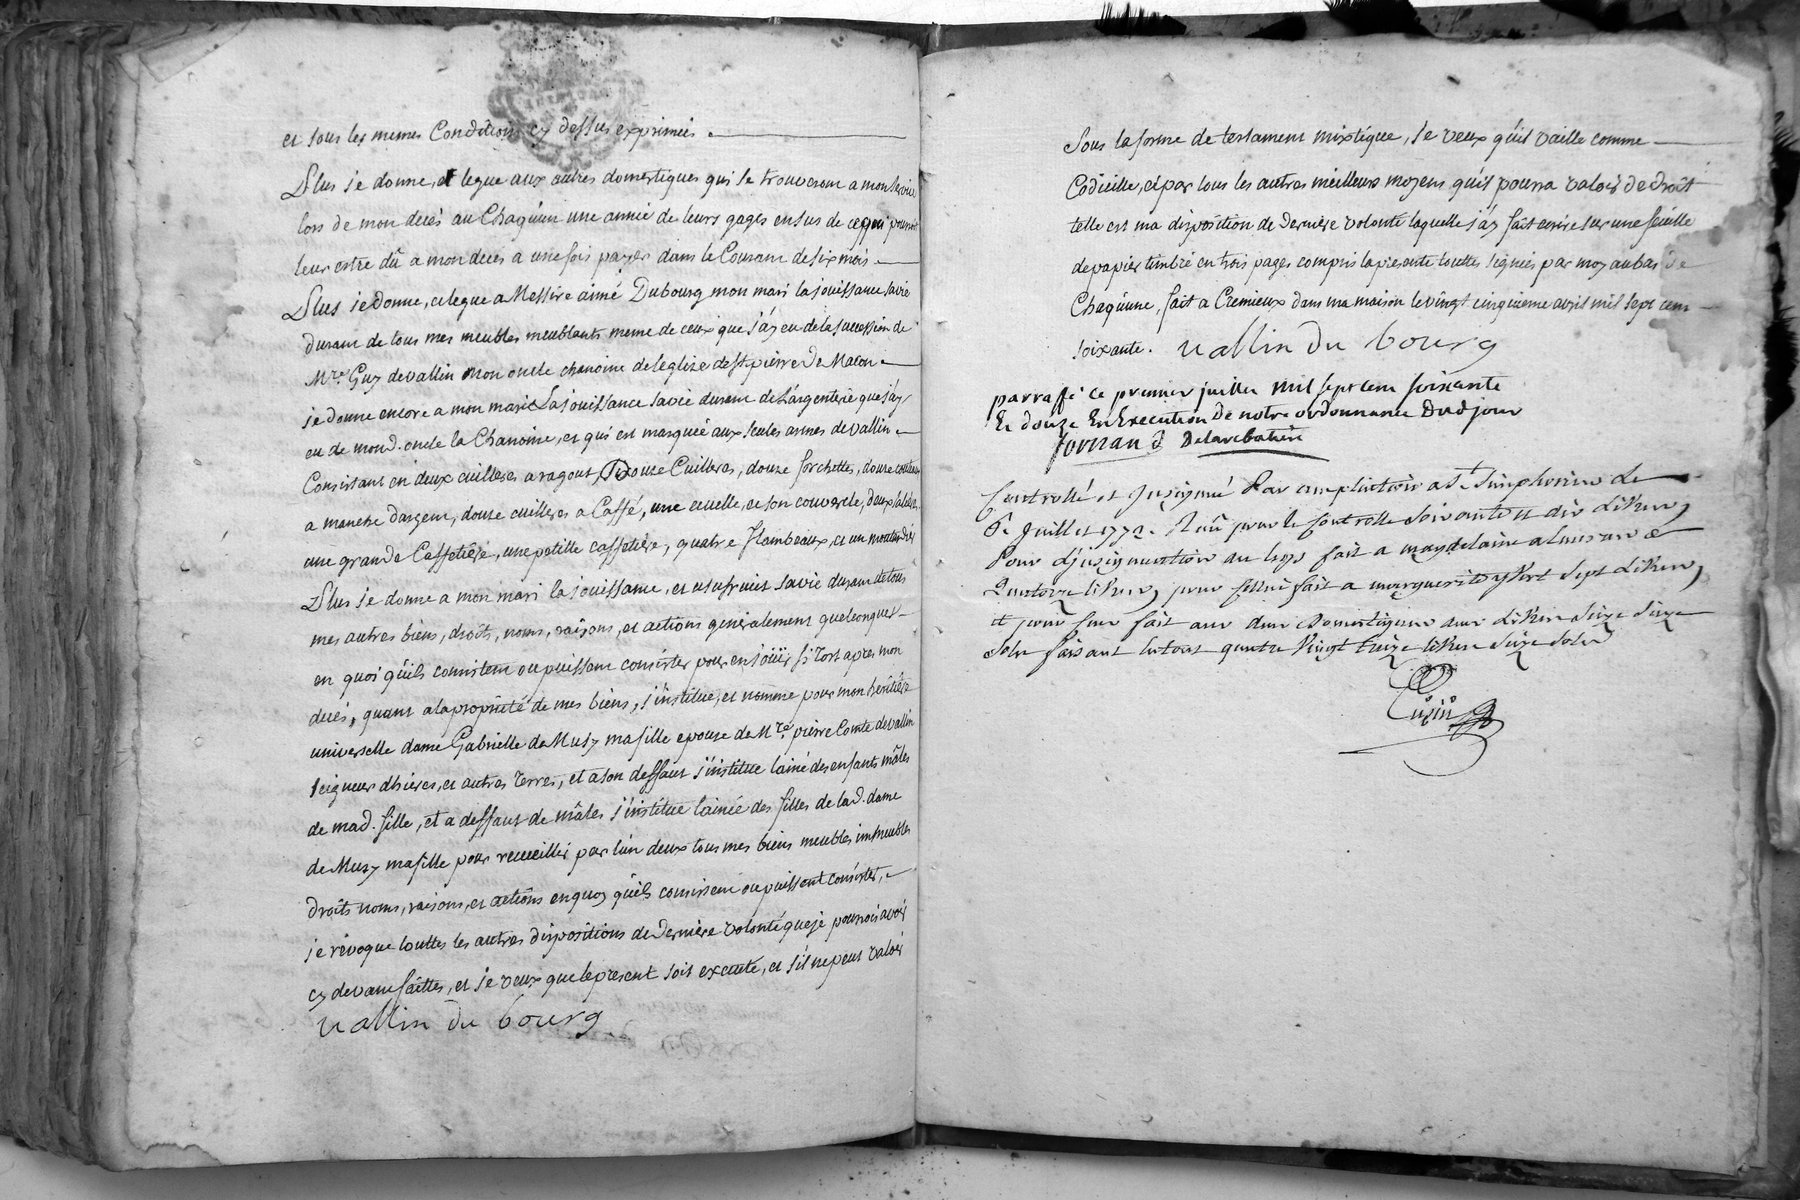 et sous les memes Conditions cy dessus exprimées .
Plus je donne, et legue aux autres domestiques qui se trouveront a mon service
lors de mon decés au Chaginin une année de leurs gages en sus de ce qui pourroit
leur estre dû a mon decès a une fois payer dans le Courant de six mois
Plus je donne, et legue a Messire aimé Dubourg mon mari la jouissance sa vie
durant de tous mes meubles meublants meme de ceux que j'ay eu de la succession de
Mre. Guy devallin mon oncle chanoine de leglize de st pierre de Macon
je donne encore a mon mari la jouissance sa vie durant de L'argenterie que j'ay
eu de mond. oncle le Chanoine, et qui est marquée aux seules armes devallin
Consistant en deux cuilleres a ragout, Douze Cuilleres, douze forchettes, douze couteaux
a manche d'argent, douze cuilleres a Caffé, une ecuelle, et son couvercle, deux salieres,
une grande Caffetiére, une petitte caffetiére, quatre flambeaux, et un moutardier
Plus je donne a mon mari la jouissance, et usufruict sa vie durant de tous
mes autres biens, droits, noms, raisons, et actions generalement quelconques
en quoi qu'ils consistent ou puissent consister pour en joüir si tost apres mon
decés, quant a la proprieté de mes biens, j'institue, et nomme pour mon heritiére
universelle dame Gabrielle de Musy ma fille epouse de Mre. pierre Comte devallin
seigneur dhieres, et autres terres, et a son deffaut j'institue lainé des enfants mâles
de mad. fille, et a deffaut de mâles j'institue lainée des filles de lad. dame
de Musy ma fille pour recueillir par l'un deux tous mes biens meubles immeubles
droits noms, raisons, et actions en quoy qu'ils consistent ou puissent consister,
je révoque touttes les autres dispositions de derniére volonté que je pourrois avoir
cy devant faittes, et je veux que le present soit executé, et s'il ne peut valoir
vallin du bourg
Sous la forme de testament mixtique, je veux qu'il vaille comme
Codicille, et par tous les autres meilleurs moyens qu'il pourra valoir de droit
telle est ma disposition de derniére volonté laquelle j'ay fait ecrire sur une feuille
de papier timbré en trois pages compris la presente touttes signées par moy au bas de
Chaqu'une, fait a Cremieux dans ma maison le vingt cinquieme avril mil sept cent
soixante. vallin du bourg
parraffé ce premier juillet mil sept cent soixante
Et douze En Execution de notre ordonnance dud jour
Delarbatiere
Controllé et Insinué a St. Simphorien le
6e Juillet 1772. Reçu pour le Controlle soixante et dix Livres,
Pour L'insinuation du legs fait a magdelaine
Quatorze livres, pour celui fait a marguerite sept Livres,
et pour ceux fait aux deux Domestiques deux Livres seize
Sols faisant en tout quatre Vingt treize livres seize Sols